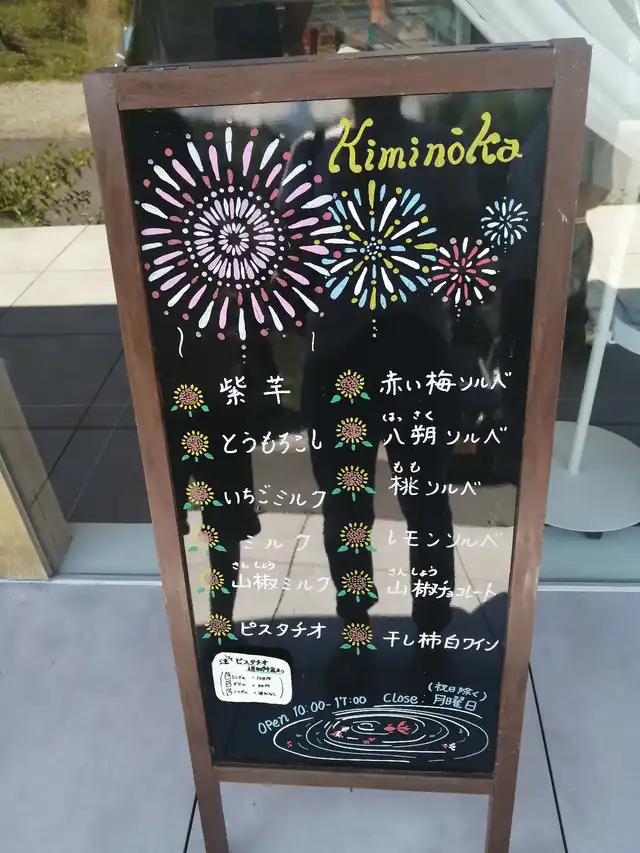 Kiminōka
紫芋
とうもろこし
いちごミルク
ミルク
さんしょう
山椒ミルク
ピスタチオ
赤い梅ソルベ
はっさく
八朔ソルベ
もも
桃ソルベ
レモンソルベ
さんしょう
山椒チョコレート
干し柿白ワイン
ピスタチオ
OPen 10:00-17:00
(祝日除く)
Close: 月曜日